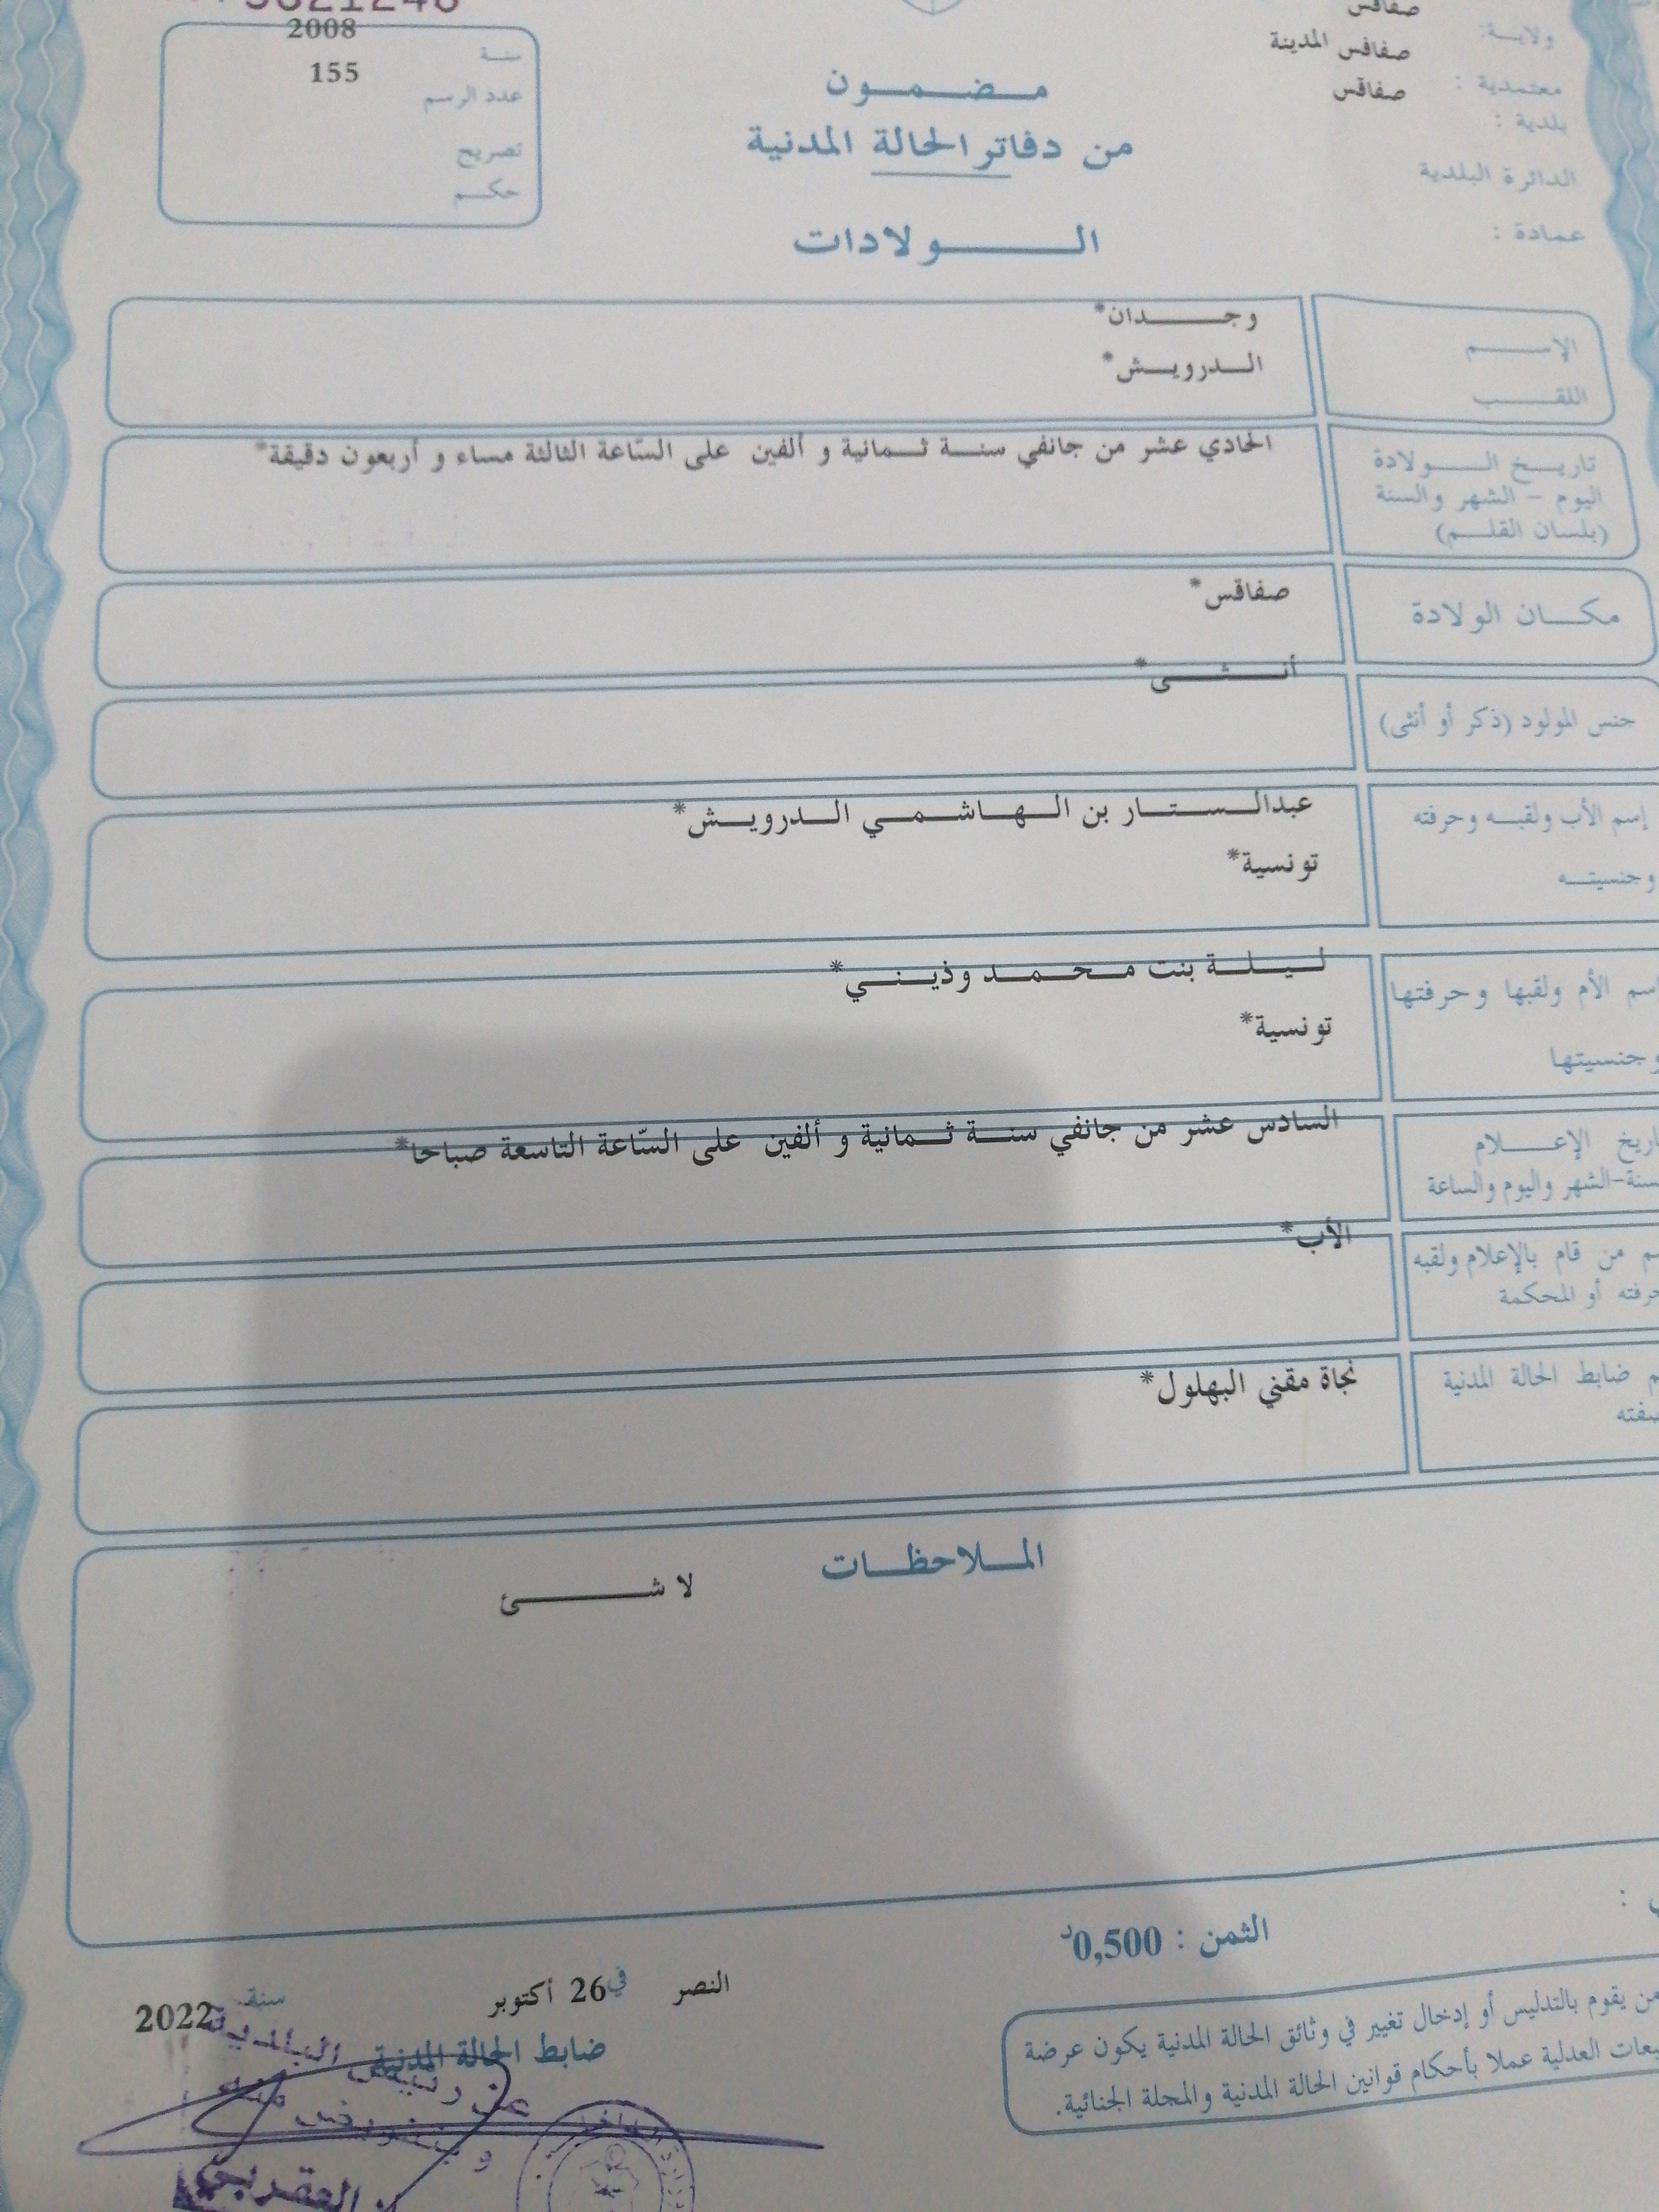 صفاقس
ولاية:
صفاقس المدينة
معتمدية :
صفاقس
بلدية :
الدائرة البلدية
عمادة :
2008
سنة
155
عدد الرسم
تصريح
حكم
مضمون
من دفاتر الحالة المدنية
الولادات
الإسم
وجدان*
اللقب
الدرويش*
تاريخ الولادة
اليوم - الشهر والسنة
(بلسان القلم)
الحادي عشر من جانفي سنة ثمانية و ألفين على السّاعة الثالثة مساء و أربعون دقيقة*
مكان الولادة
صفاقس*
جنس المولود (ذكر أو أنثى)
أنثى*
إسم الأب ولقبه وحرفته
عبدالستار بن الهاشمي الدرويش*
وجنسيته
تونسية*
إسم الأم ولقبها وحرفتها
ليلة بنت محمد وذيني*
وجنسيتها
تونسية*
تاريخ الإعلام
السنة-الشهر واليوم والساعة
السادس عشر من جانفي سنة ثمانية و ألفين على السّاعة التاسعة صباحا*
من قام بالإعلام ولقبه
أو المحكمة
الأب*
ضابط الحالة المدنية
نجاة مقني البهلول*
الملاحظات
لا شئ
الثمن : 0,500د
النصر في 26 أكتوبر سنة 2022
ضابط الحالة المدنية
عن رئيس البلدية
وبتفويض منه
العقربي
من يقوم بالتدليس أو إدخال تغيير في وثائق الحالة المدنية يكون عرضة
العدلية عملا بأحكام قوانين الحالة المدنية والمجلة الجنائية.